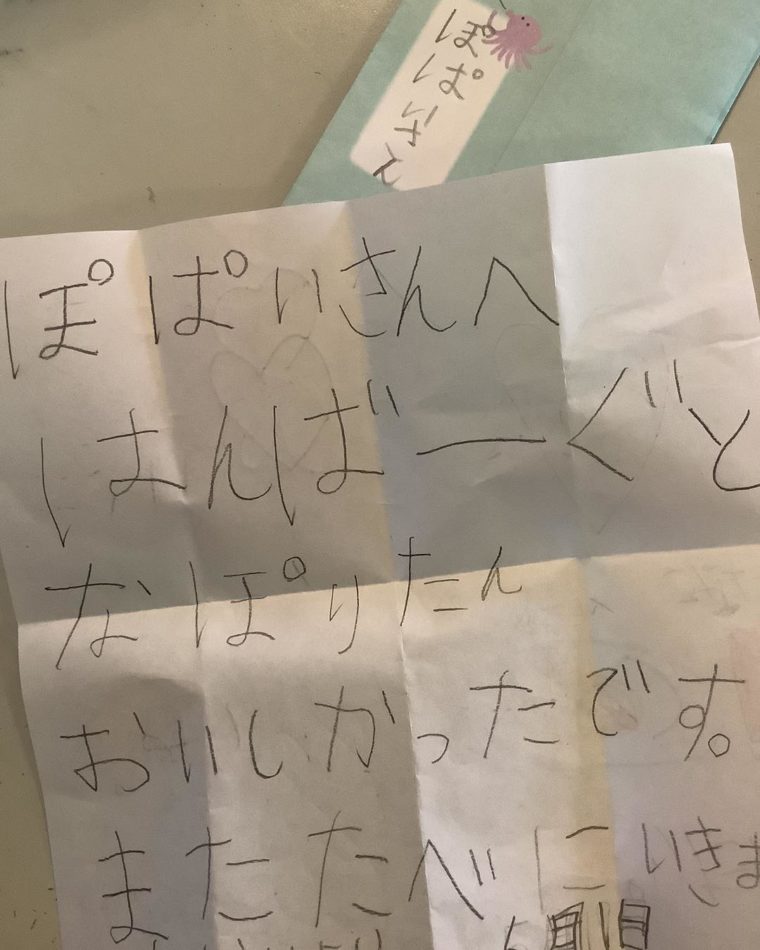 ぽぱいさん
ぽぱいさんへ
はんばーぐと
なぽりたん
おいしかったです。
またたべにいきま